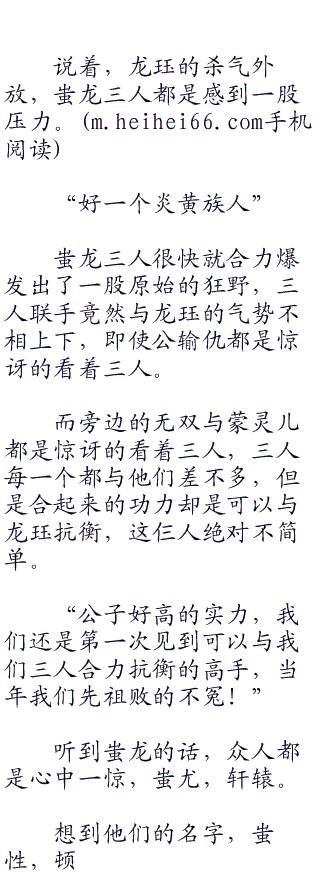 说着，龙珏的杀气外
放，蚩龙三人都是感到一股
压力。(m.heihei66.com手机
阅读)
“好一个炎黄族人”
蚩龙三人很快就合力爆
发出了一股原始的狂野，三
人联手竟然与龙珏的气势不
相上下，即使公输仇都是惊
讶的看着三人。
而旁边的无双与蒙灵儿
都是惊讶的看着三人，三人
每一个都与他们差不多，但
是合起来的功力却是可以与
龙珏抗衡，这仨人绝对不简
单。
“公子好高的实力，我
们还是第一次见到可以与我
们三人合力抗衡的高手，当
年我们先祖败的不冤！”
听到蚩龙的话，众人都
是心中一惊，蚩尤，轩辕。
想到他们的名字，蚩
性，顿